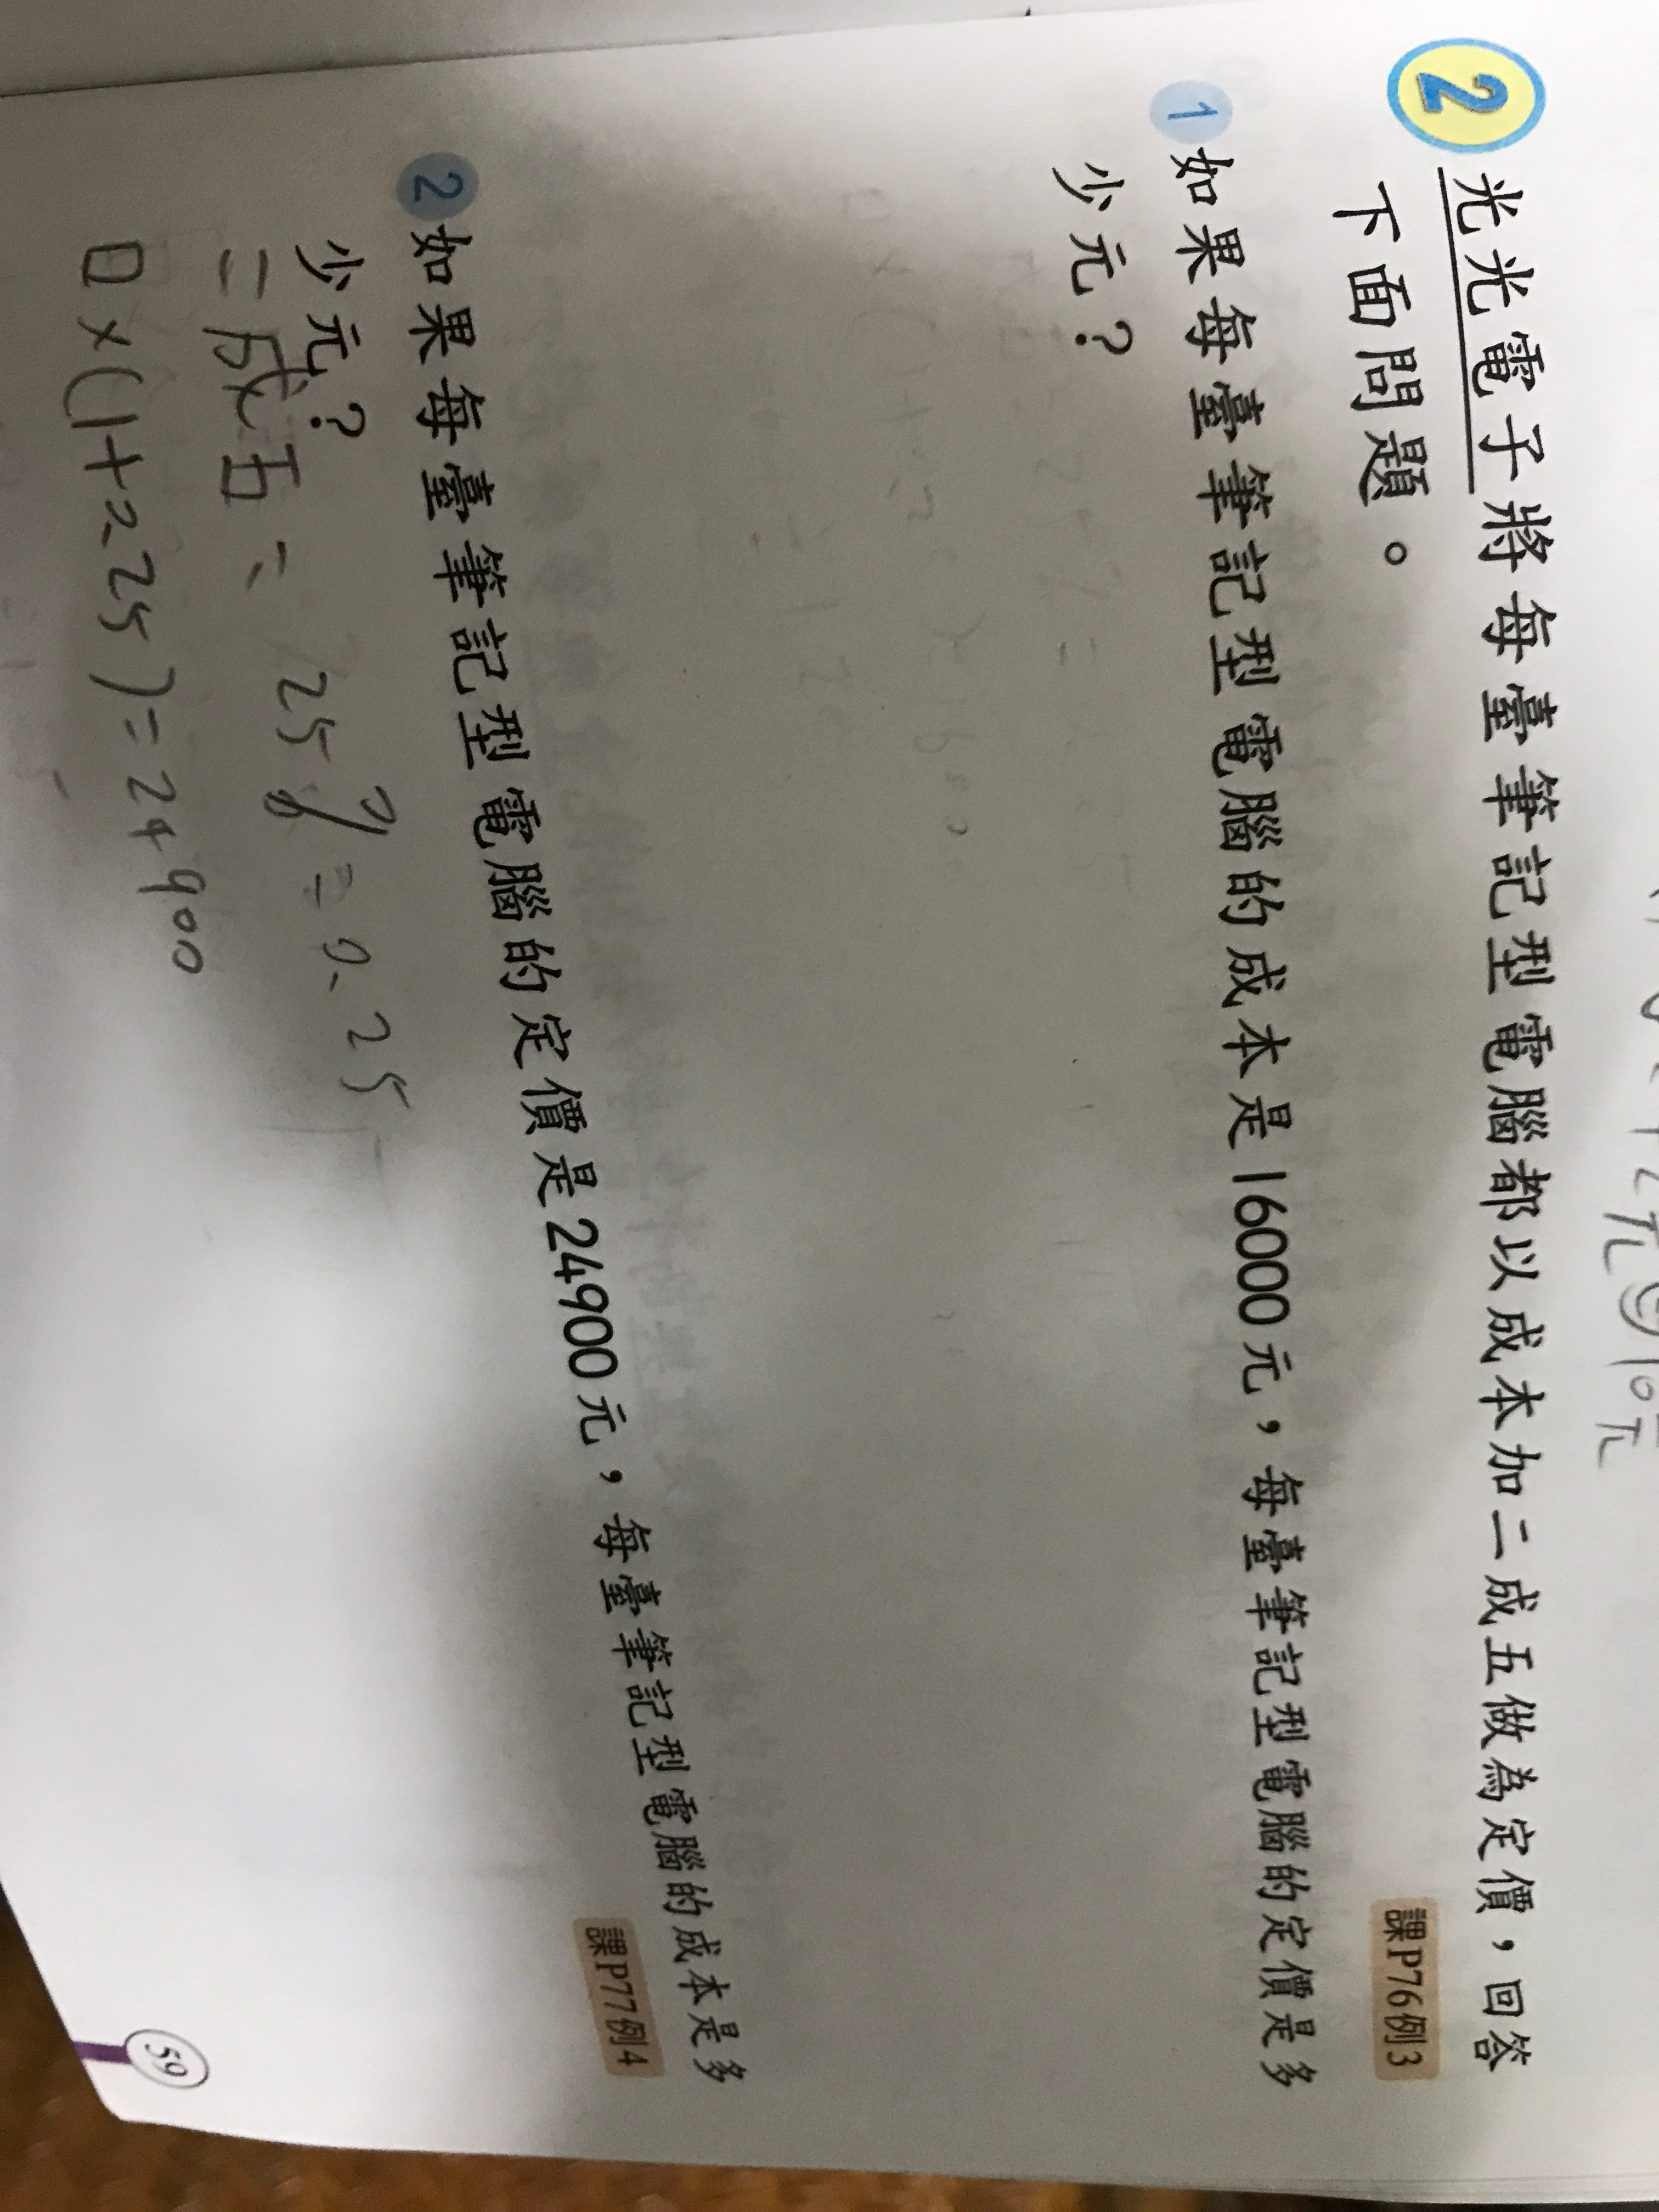 2 光光電子將每臺筆記型電腦都以成本加二成五做為定價，回答
下面問題。
課P76例3
1 如果每臺筆記型電腦的成本是16000元，每臺筆記型電腦的定價是多
少元？
2 如果每臺筆記型電腦的定價是24900元，每臺筆記型電腦的成本是多
少元？
課P77例4
二成五=25%=0.25
□×(1+0.25)=24900
59